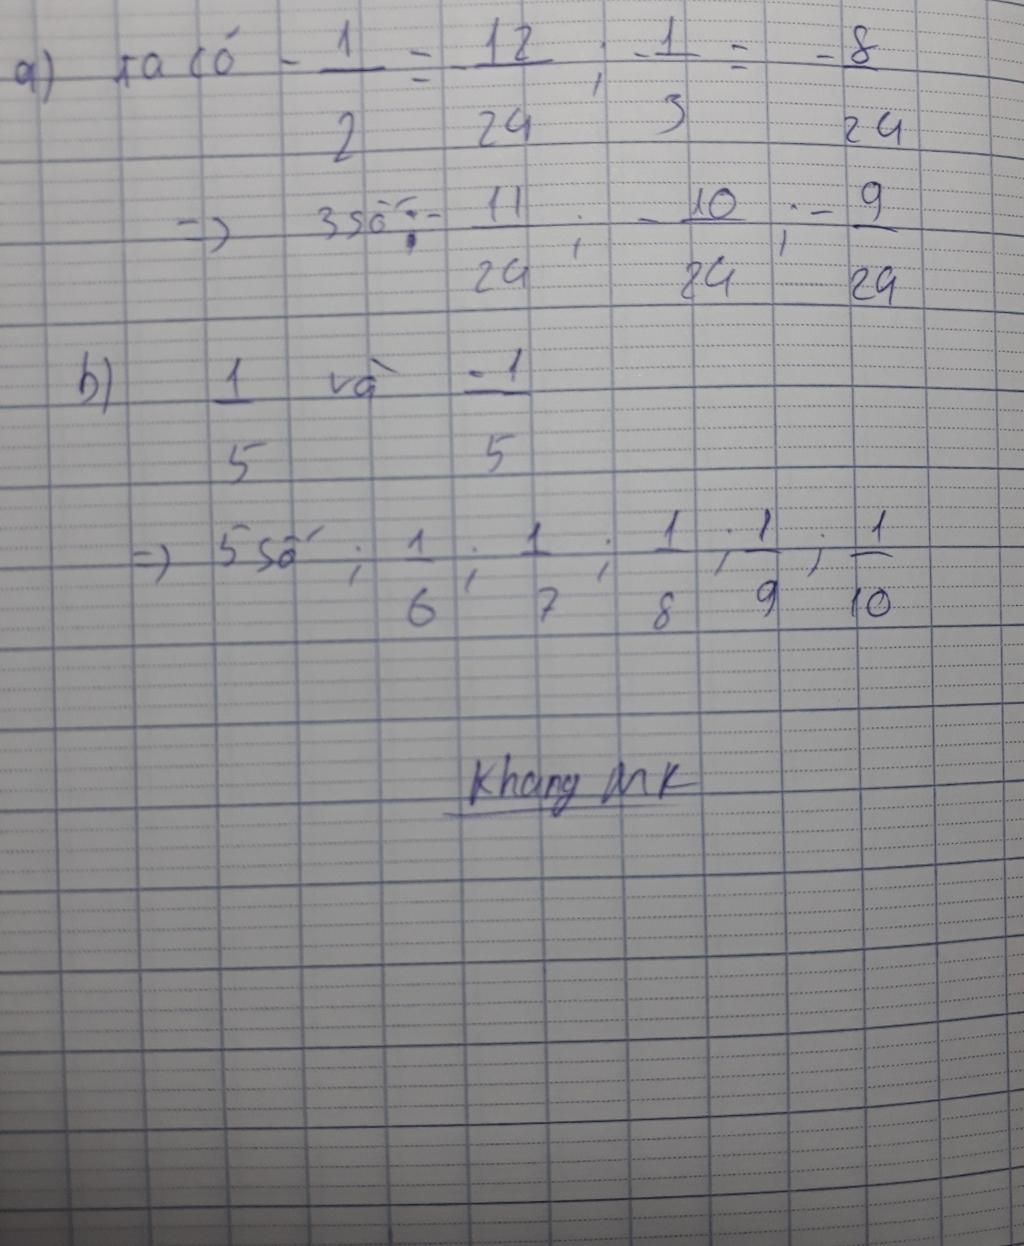 a) ta có - 1/2 = - 12/24 ; - 1/3 = - 8/24
=> 3 số : - 11/24 ; - 10/24 ; - 9/24
b) 1/5 và -1/5
=> 5 số ; 1/6 ; 1/7 ; 1/8 ; 1/9 ; 1/10
Khang MK